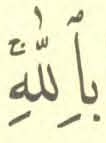 بِٱللَّهِۚ